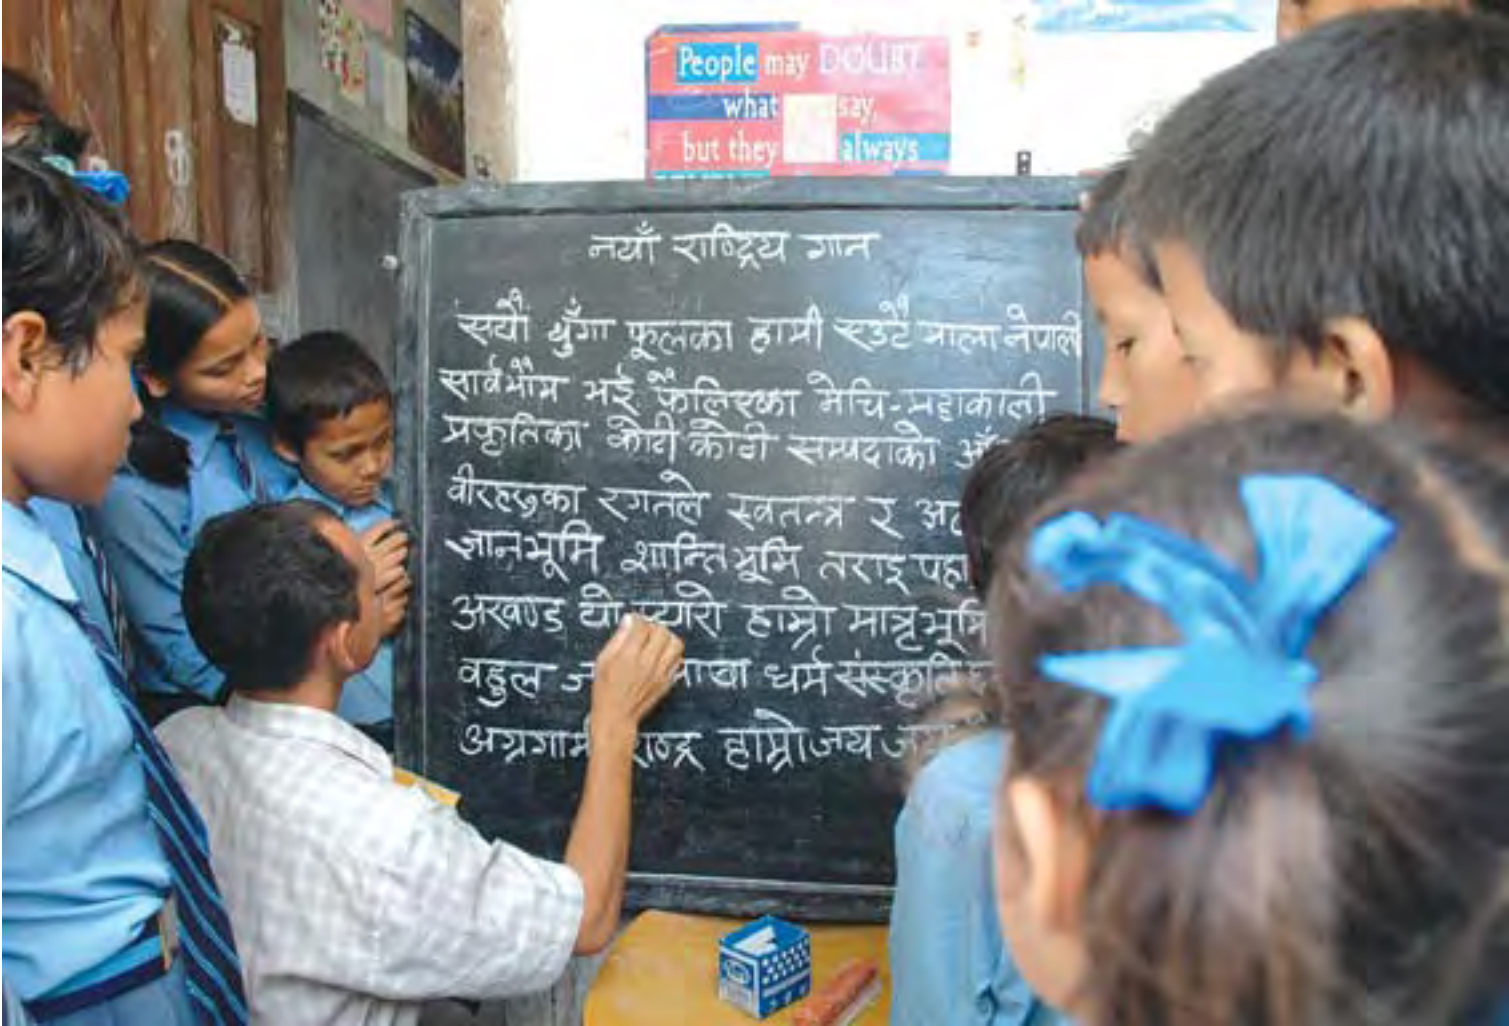 People may DOUBT
what say,
but they always
नयाँ राष्ट्रिय गान
सयौं थुँगा फूलका हामी एउटै माला नेपाली
सार्वभौम भई फैलिएका मेचि-महाकाली
प्रकृतिका कोटी कोटी सम्पदाको
वीरहरुका रगतले स्वतन्त्र र
ज्ञानभूमि शान्तिभूमि तराइ
अखण्ड यो प्यारो हाम्रो मातृभूमि
वहुल धर्म संस्कृति
राष्ट्र हाम्रो जय